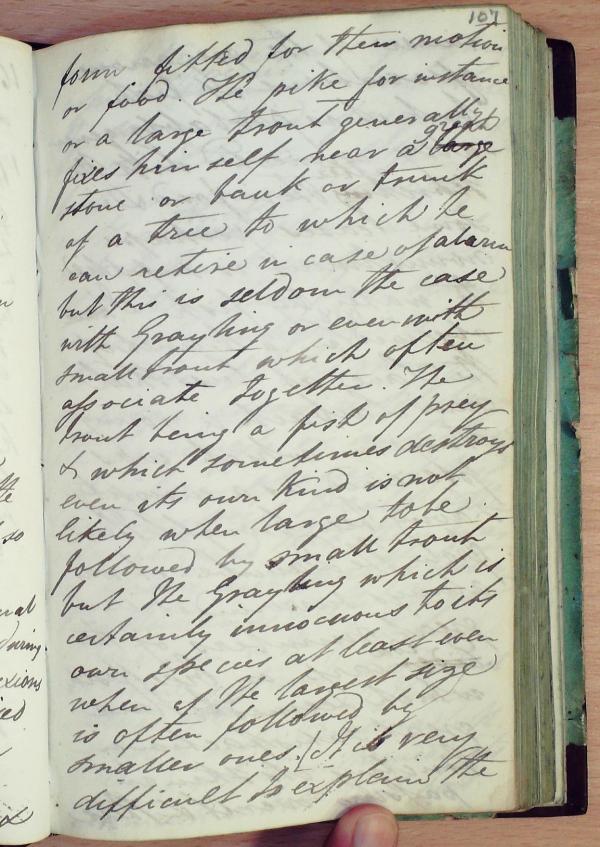 107
form fitted for their motion
or food. The pike for instance
or a large trout generally
fixes himself near a large great
stone or bank or trunk
of a tree to which he
can retire in case of alarm
but this is seldom the case
with Grayling or even with
small trout which often
associate together. The
trout being a fish of prey
& which sometimes destroys
even its own kind is not
likely when large to be
followed by small trout
but the Grayling which is
certainly innocuous to its
own species at least even
when of the largest size
is often followed by
smaller ones. [It is very
difficult to explain the